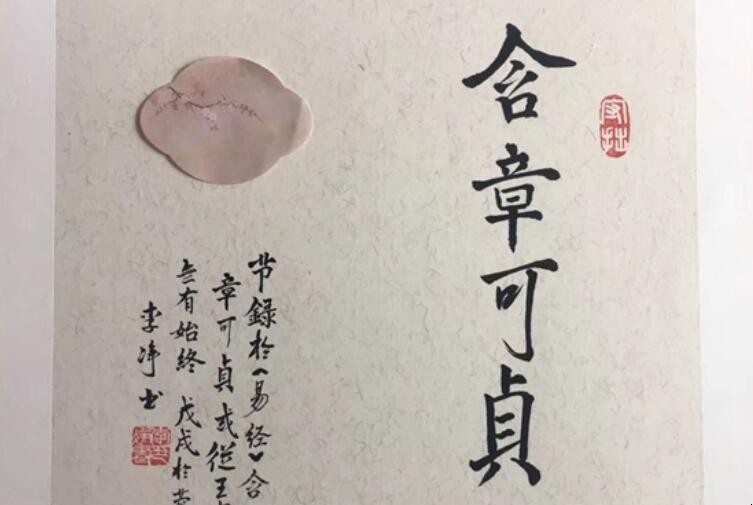 含章可貞
守拙
节録於《易经》含
章可貞或從王
無有始終 戊戌於
李净书